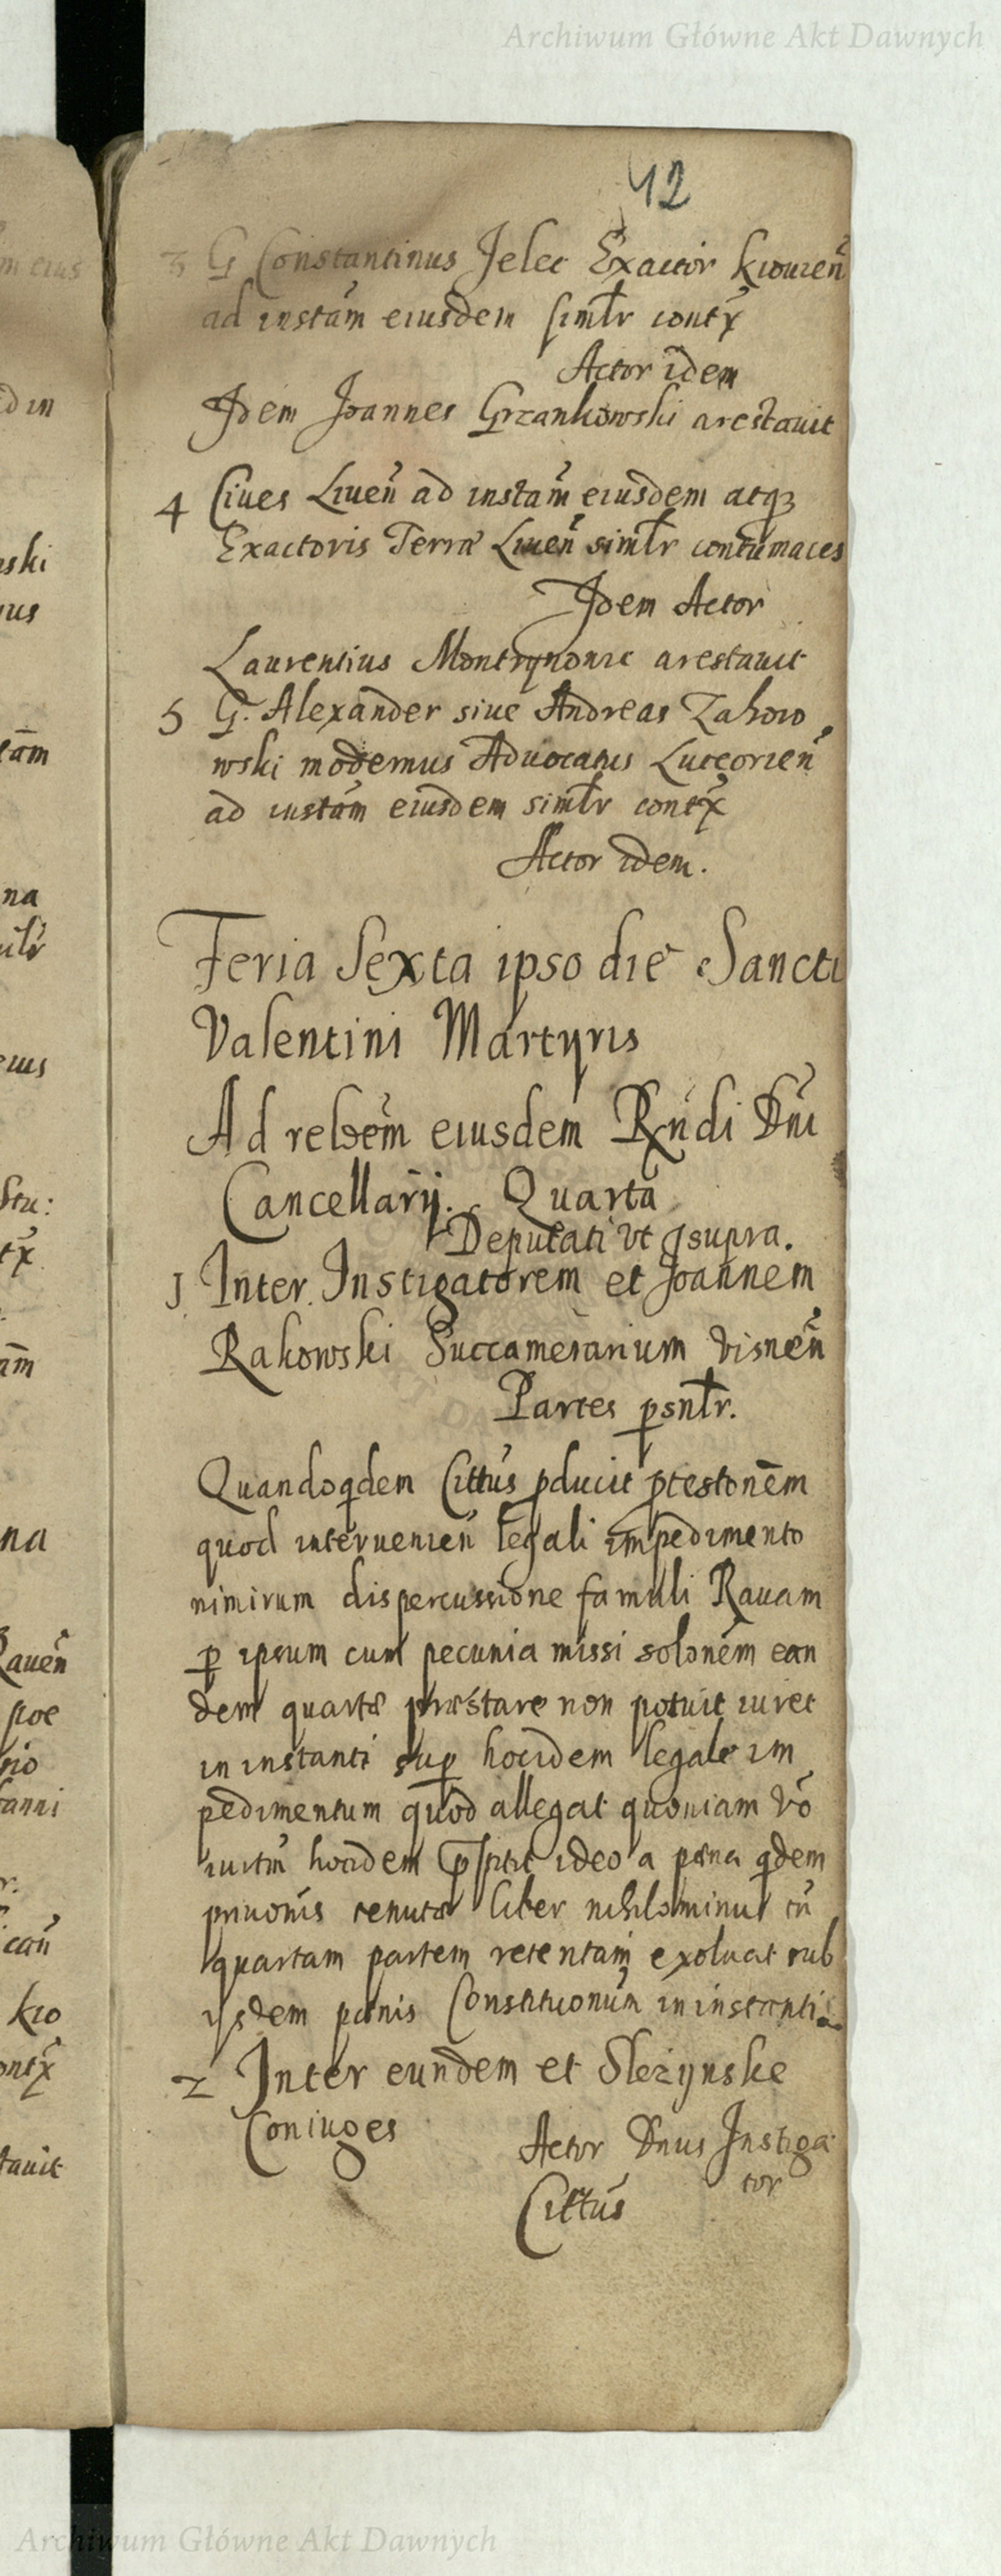 Archiwum Główne Akt Dawnych
42
3 G Constantinus Jelec Exactor kiouień
ad instām eiusdem simłr contx
Actor idem
Idem Joannes Grzankowski arestauit
4 Ciues Liueń ad instam eiusdem atq3
Exactoris Terræ Liueń simłr contumaces
Idem Actor
Laurentius arestauit
5 G. Alexander siue Andreas Zahoro
wski modernus Aduocatus Luceorień
ad instam eiusdem simłr contx
Actor idem.
Feria Sexta ipso die Sancti
Valentini Martyris
Ad relõem eiusdem Rńdi Dńi
Cancellarij. Quarta
Deputati vt supra.
1 Inter Instigatorem et Joannem
Rakowski Succamerarium visneń
Partes psntr.
Quandoqdem Cittus pducit ptestonem
quod interuenień legali impedimento
nimirum dispercussione famuli Rauam
p ipsum cum pecunia missi solonem ean
dem quartæ præstare non potuit iuret
in instanti sup hocidem legale im
pedimentum quod allegat quoniam vo
hocidem ideo a pæna qdem
liber nihilominus tń
quartam partem retentam exoluat sub
ijsdem pænis Constituonum in instanti.
2 Inter eundem et Slezynske
Coniuges
Actor Dnus Instiga
tor
Cittus
Archiwum Główne Akt Dawnych